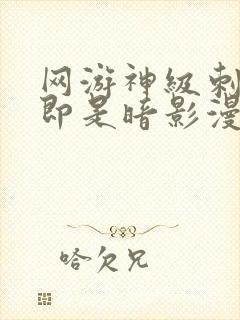 网游神级刺
即是暗影漫
哈欠兄